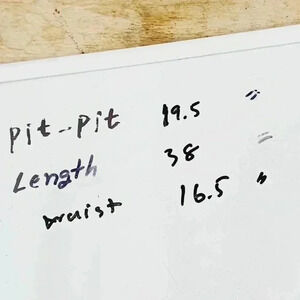 Pit--Pit 19.5 "
Length 38 "
waist 16.5 "